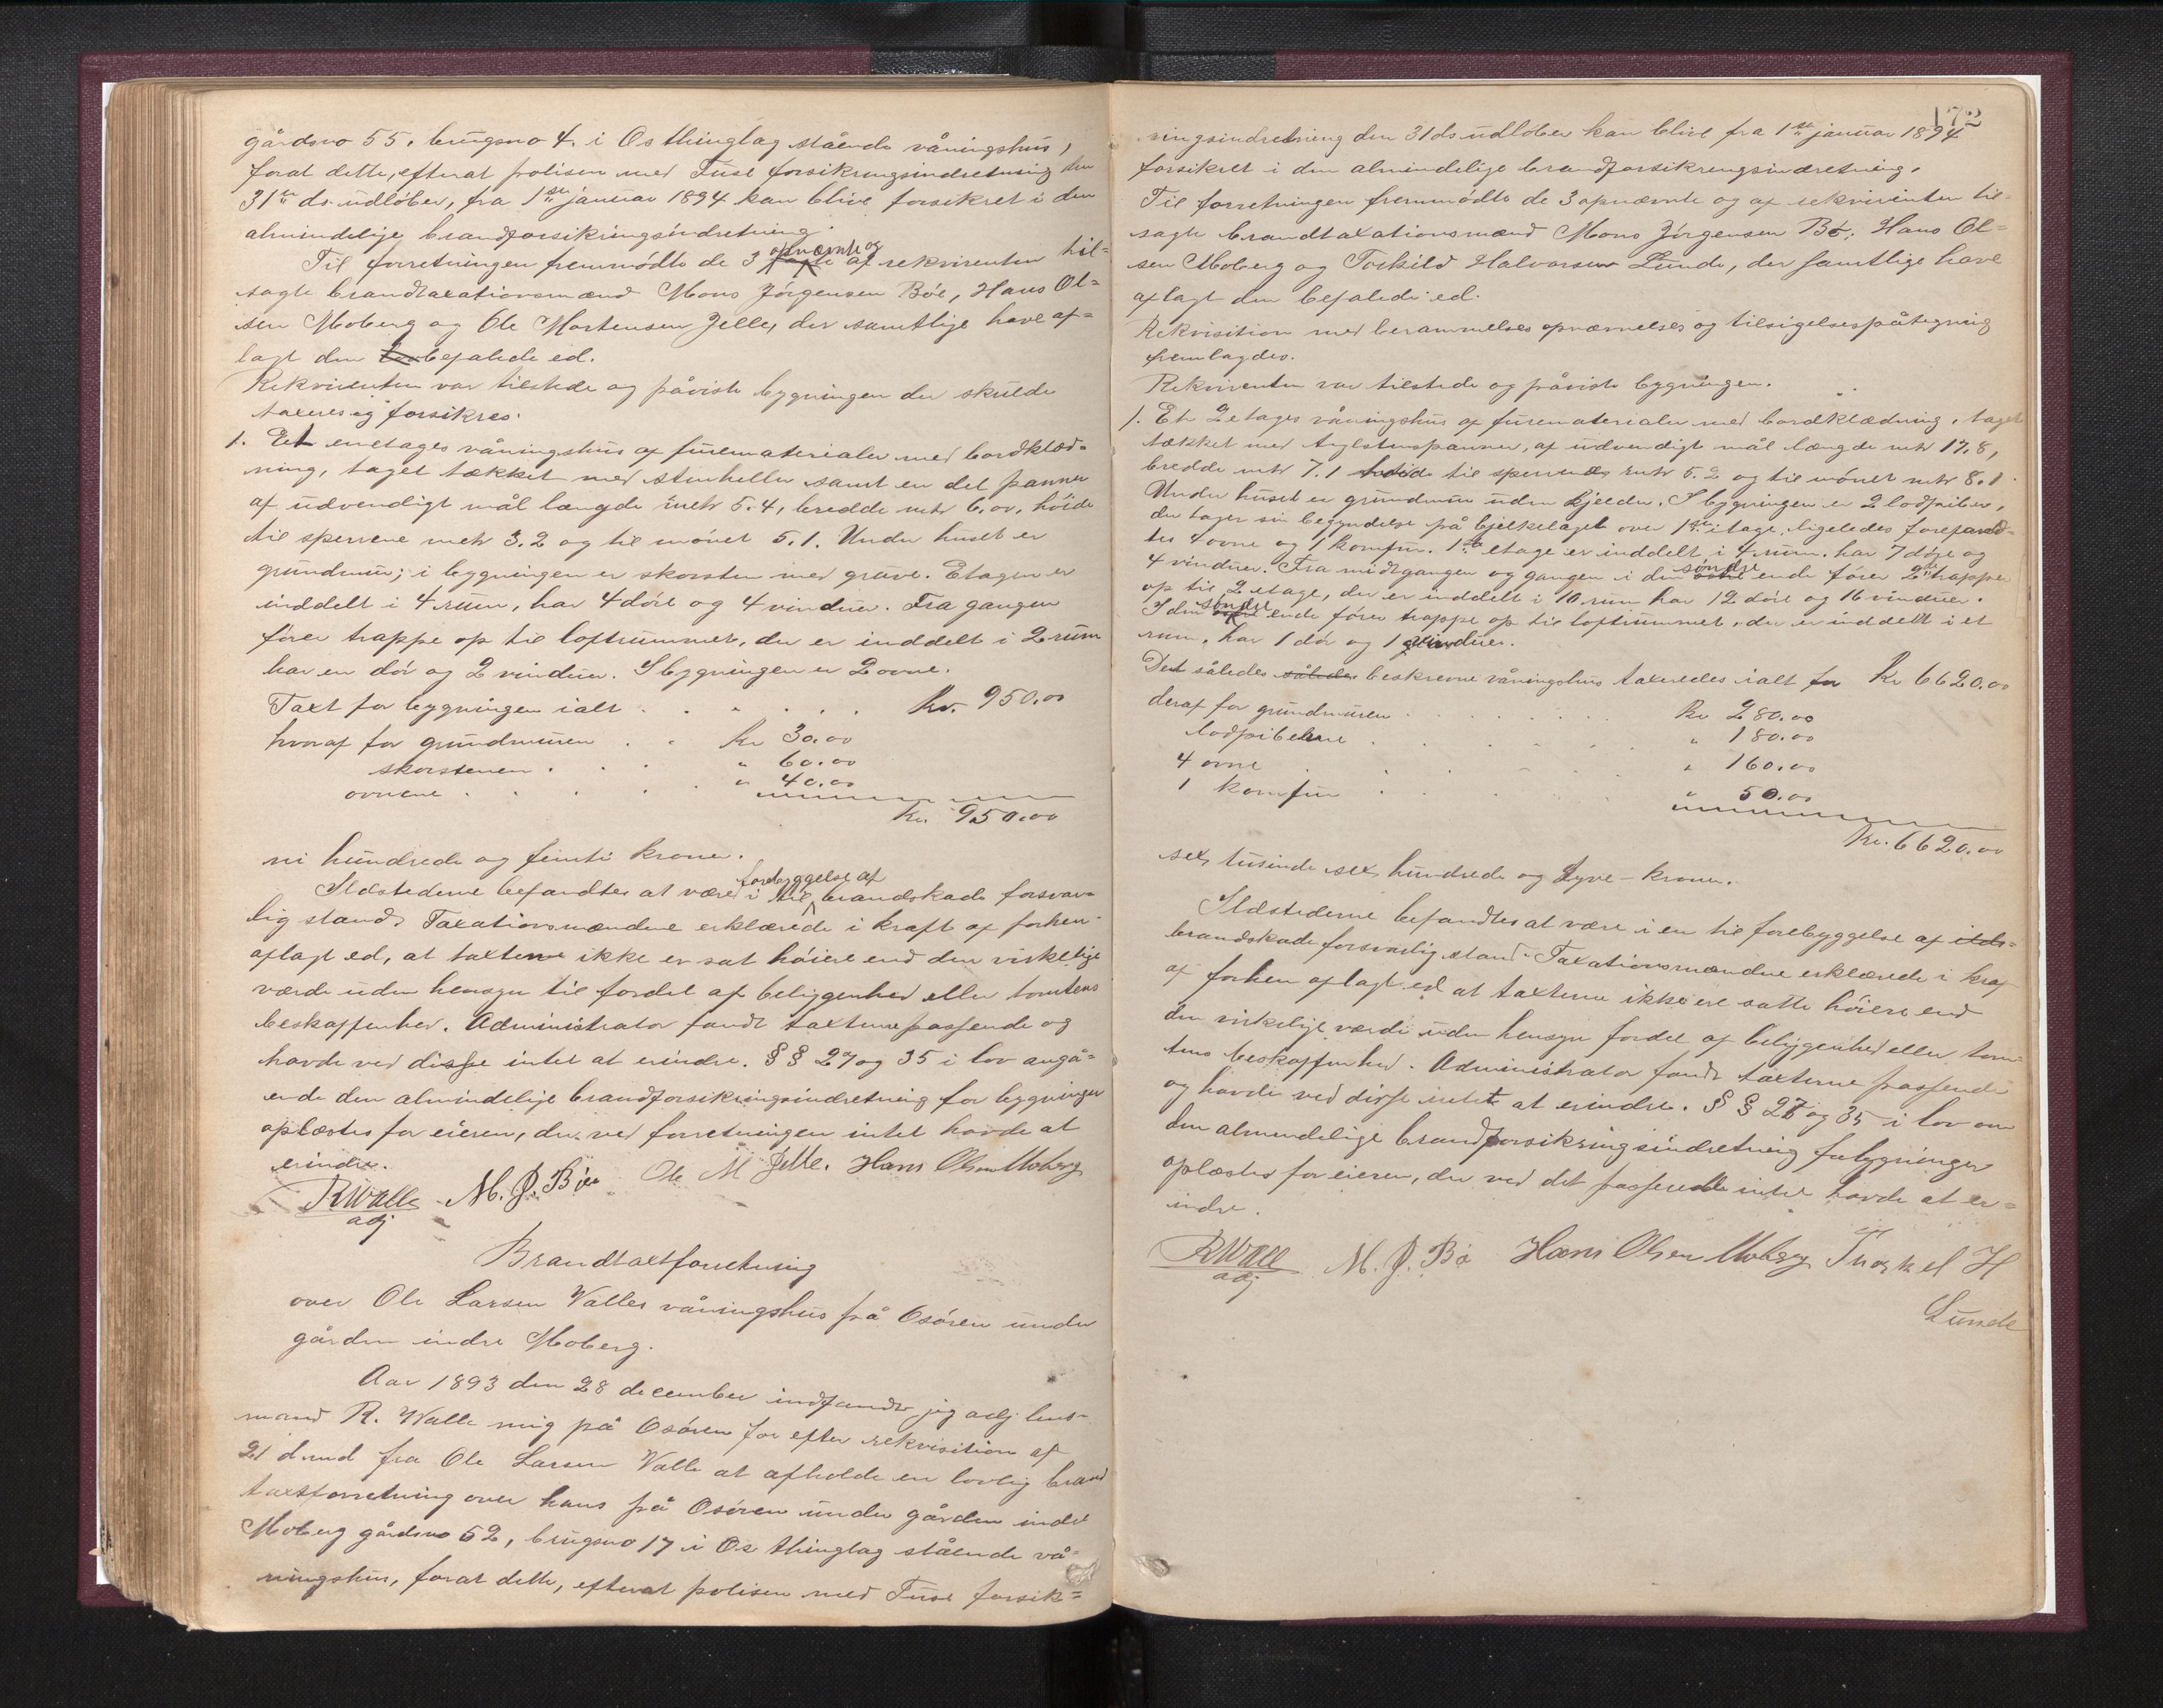 gårdsno 55, brugsno 4, i Os thinglag stående våningshus,
forat dette, efterat polisen med Fuse forsikringsindretning den
31te ds udløber, fra 1ste januar 1894 kan blive forsikret i den
almindelige brandforsikringsindretning.
Til forretningen fremmødte de 3 opnævnte og af rekvirenten til=
sagte brandtaxationsmænd Mons Jørgensen Bøe, Hans Ol=
sen Moberg og Ole Mortensen Jelle, der samtlige have af=
lagt den befalede ed.
Rekvirenten var tilstede og påviste bygningen der skulde
taxeres og forsikres.
1. Et enetages våningshus af furematerialer med bordklæd=
ning, taget tækket med stenheller samt en del panner
af udvendigt mål længde metr 5.4, bredde mtr 6,00, høide
til sperrene metr 3.2 og til mønet 5.1. Under huset er
grundmur; i bygningen er skorsten med gruve. Etagen er
inddelt i 4 rum, har 4 døre og 4 vinduer. Fra gangen
fører trappe op til loftrummet, der er inddelt i 2 rum
har en dør og 2 vinduer. I bygningen er 2 ovne.
Taxt for bygningen ialt . . . . . . Kr. 950.00
hvoraf for grundmuren . . Kr 30.00
skorstenen . . . " 60.00
ovnene . . . . " 40.00
Kr. 950.00
ni hundrede og femti kroner.
Ildstederne befandtes at være i til forebyggelse af brandskade forsvar=
lig stand. Taxationsmændene erklærede i kraft af forhen
aflagt ed, at taxterne ikke er sat høiere end den virkelige
værdi uden hensyn til fordel af beliggenhed eller tomtens
beskaffenhed. Administrator fandt taxterne passende og
havde ved disse intet at erindre. § § 27 og 35 i lov angå=
ende den almindelige brandforsikringsindretning for bygninger
oplæstes for eieren, der ved forretningen intet havde at
erindre.
RWalle M. J. Bøe Ole M Jelle. Hans Olsen Moberg
adj
Brandtaxtforretning
over Ole Larsen Valles våningshus på Osøren under
gården indre Moberg.
Aar 1893 den 28 december indfandt jeg adj lens=
mand R. Walle mig på Osøren for efter rekvisition af
21 d. md fra Ole Larsen Valle at afholde en lovlig brand
taxtforretning over hans på Osøren under gården indre
Moberg gårdsno 52, brugsno 17 i Os thinglag stående vå=
ningshus, forat dette, efterat polisen med Fuse forsik=
172
ringsindretning den 31 ds udløber kan blive fra 1ste januar 1894
forsikret i den almindelige brandforsikringsindretning.
Til forretningen fremmødte de 3 opnævnte og af rekvirenten til=
sagte brandtaxationsmænd Mons Jørgensen Bø, Hans Ol=
sen Moberg og Torkild Halvorsen Lunde, der samtlige have
aflagt den befalede ed.
Rekvisition med berammelses opnævnelses og tilsigelsespåtegning
fremlagdes.
Rekvirenten var tilstede og påviste bygningen.
1. Et 2 etages våningshus af furematerialer med bordklædning, taget
tækket med teglstenspanner, af udvendigt mål længde mtr 17.8,
bredde mtr 7.1 høide til sperrendes mtr 5.2 og til mønet mtr 8.1.
Under huset er grundmur uden kjelder. I bygningen er 2 lodpiber,
der tager sin begyndelse på bjelkelaget over 1ste etage, ligeledes forefand=
tes 4 ovne og 1 komfur. 1ste etage er inddelt i 4 rum, har 7 døre og
4 vinduer. Fra midtgangen og gangen i den søndre ende fører 2de trapper
op til 2 etage, der er inddelt i 10 rum har 12 døre og 16 vinduer.
I den søndre ende fører trappe op til loftrummet, der er inddelt i et
rum, har 1 dør og 1 vinduer.
Det således således beskrevne våningshus taxeredes ialt for Kr 6620.00
deraf for grundmuren . . . . . Kr 280.00
lodpiberne . . . . . " 180.00
4 ovne . . . . . " 160.00
1 komfur . . . . " 50.00
Kr. 6620.00
sex tusinde sex hundrede og tyve - kroner.
Ildstederne befandtes at være i en til forebyggelse af ilds=
brandskade forsvarlig stand. Taxationsmændene erklærede i kraf
af forhen aflagt ed at taxterne ikke ere satte høiere end
den virkelige værdi uden hensyn fordel af beliggenhed eller tom=
tens beskaffenhed. Administrator fandt taxterne passende
og havde ved disse intet at erindre. § § 27 og 35 i lov om
den almindelige brandforsikringsindretning for bygninger
oplæstes for eieren, der ved det passerede intet havde at er=
indre.
RWalle M. J. Bø Hans Olsen Moberg Thorkel H
adj
Lunde